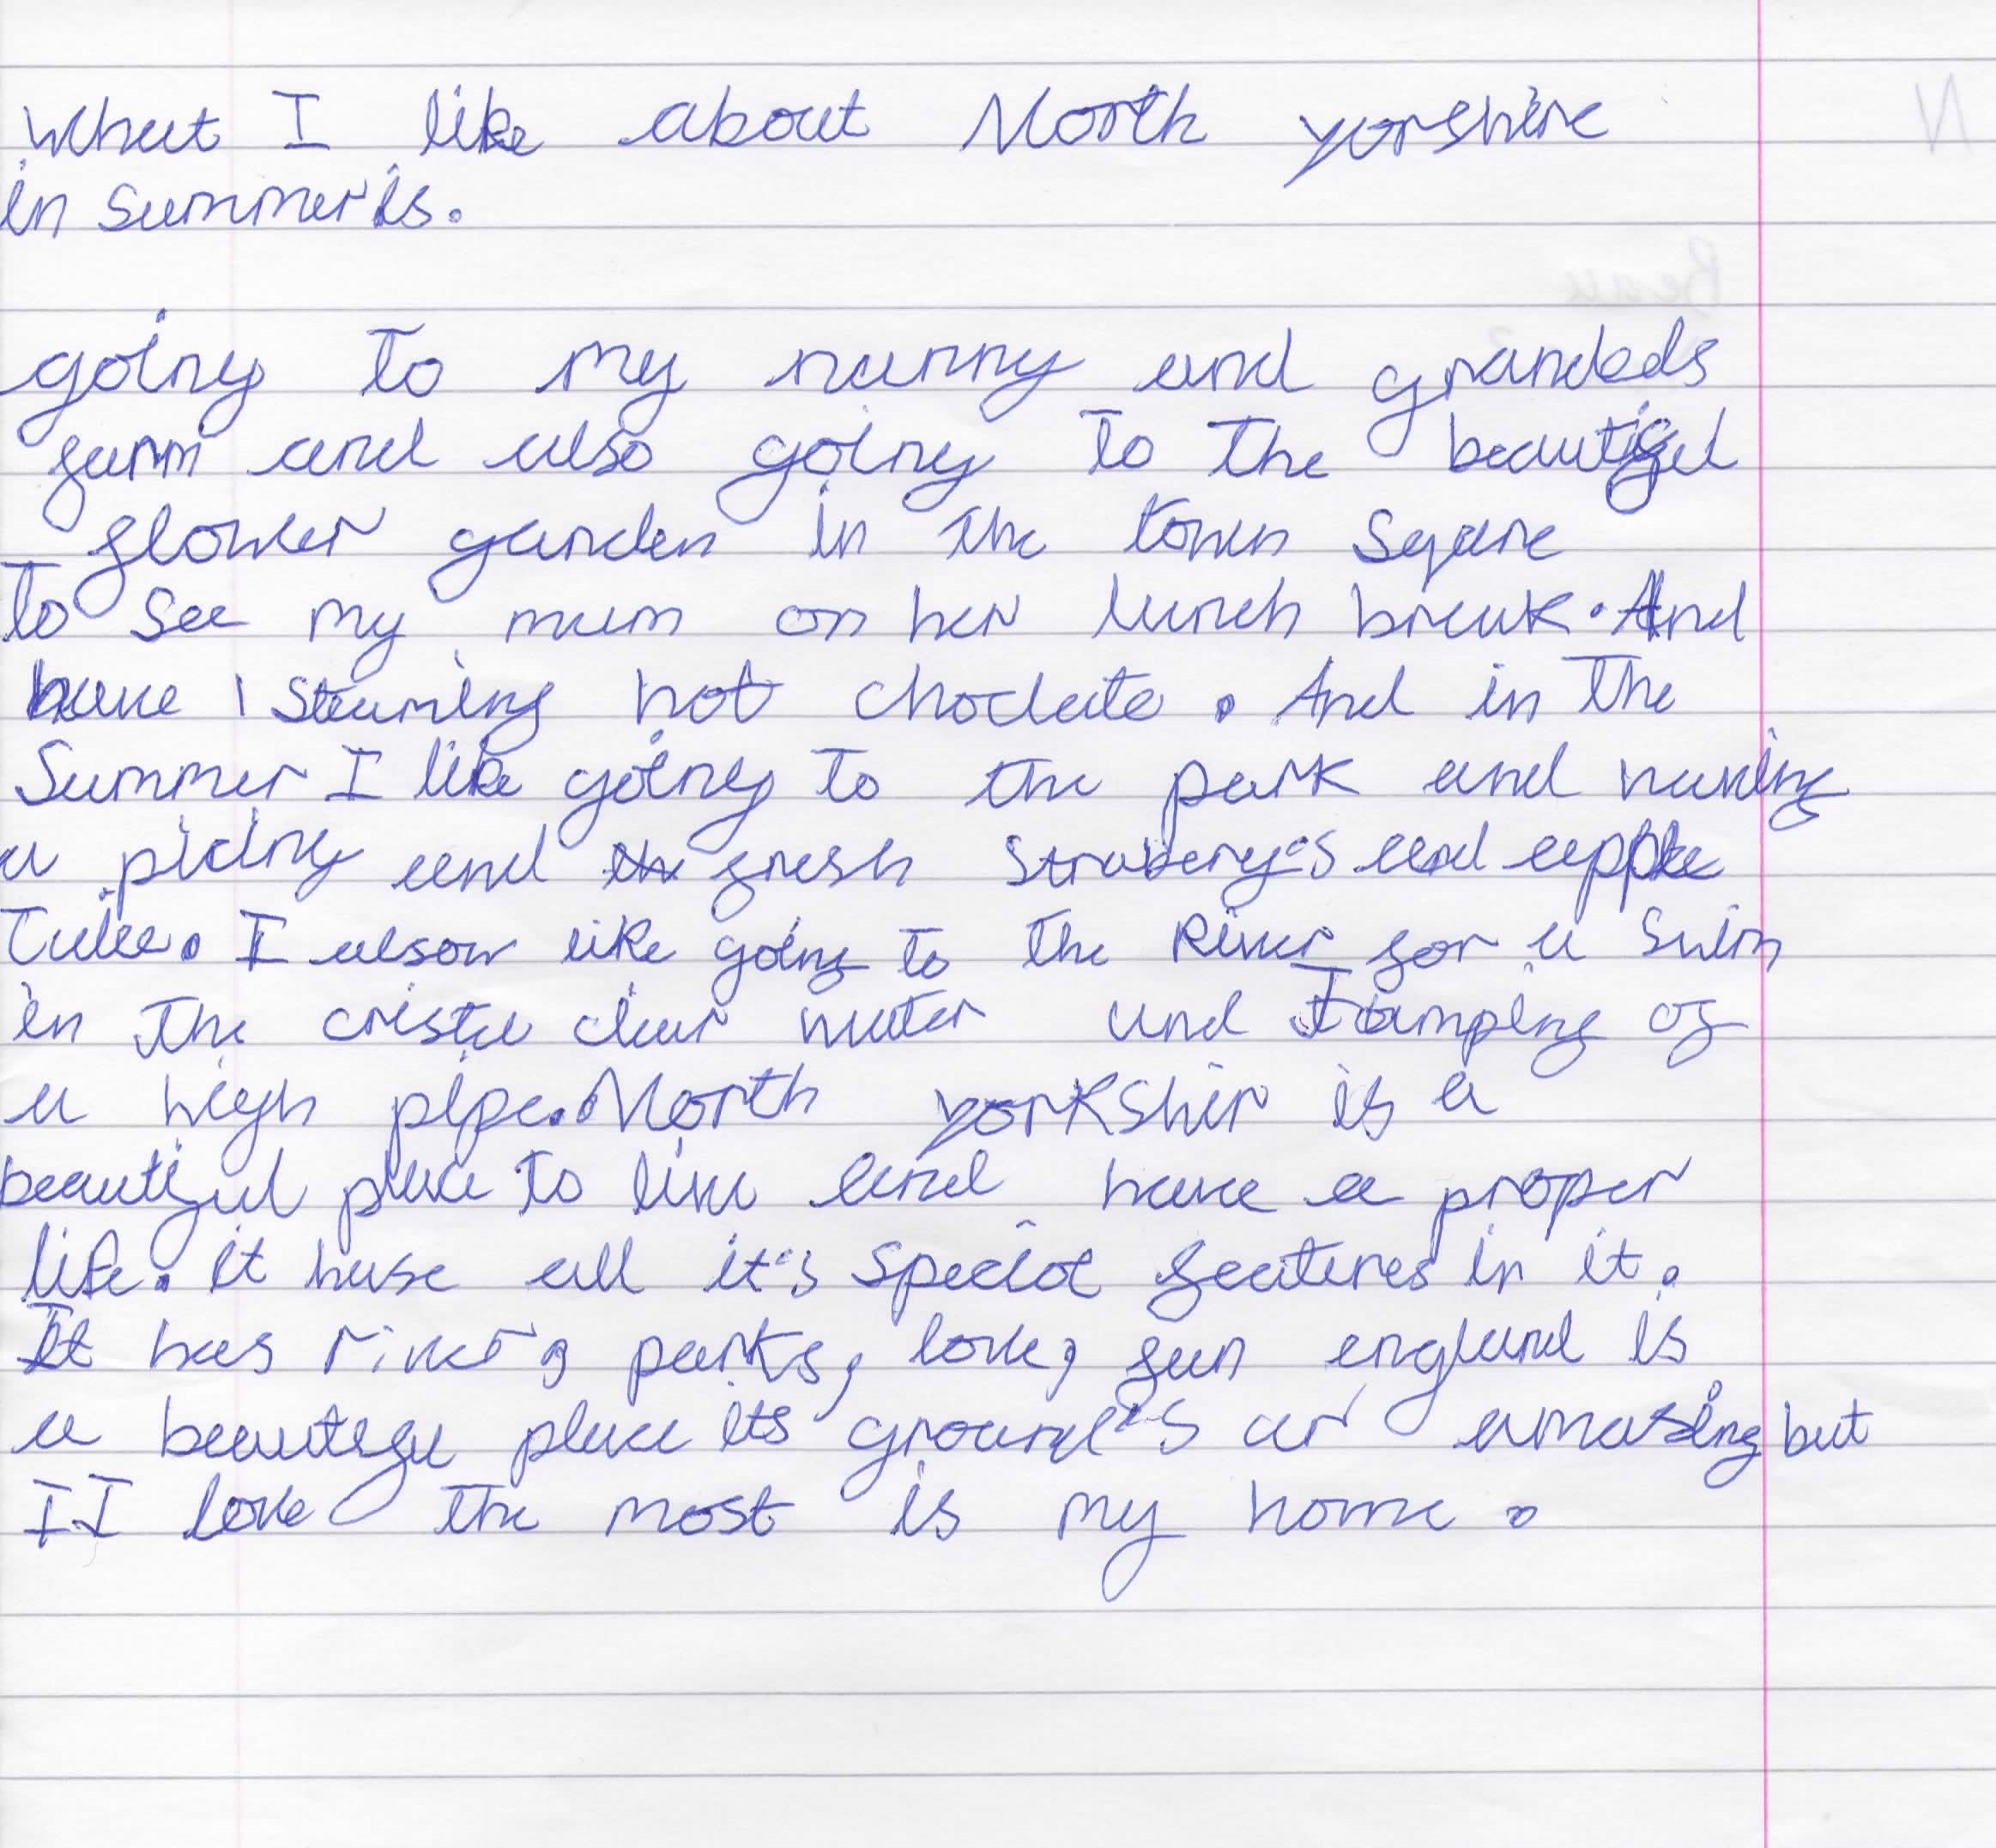 What I like about North yorshire
in summer is.
going to my nanny and grandads
farm and also going to the beautiful
flower garden in the town Sqare
to see my mum on her lunch break. And
have 1 steaming hot choclate. And in the
Summer I like going to the park and having
a picing and fresh straberye's and apple
I alsow like going to the River for a Swim
in the crista clear water and Jumping of
a high pipe. North yorkshir is a
beautiful place to live and have a proper
life. it hase all it's special featires in it.
It has river, parks, love, fun england is
a beautefu place its ground's ar amazing but
I I love the most is my home.